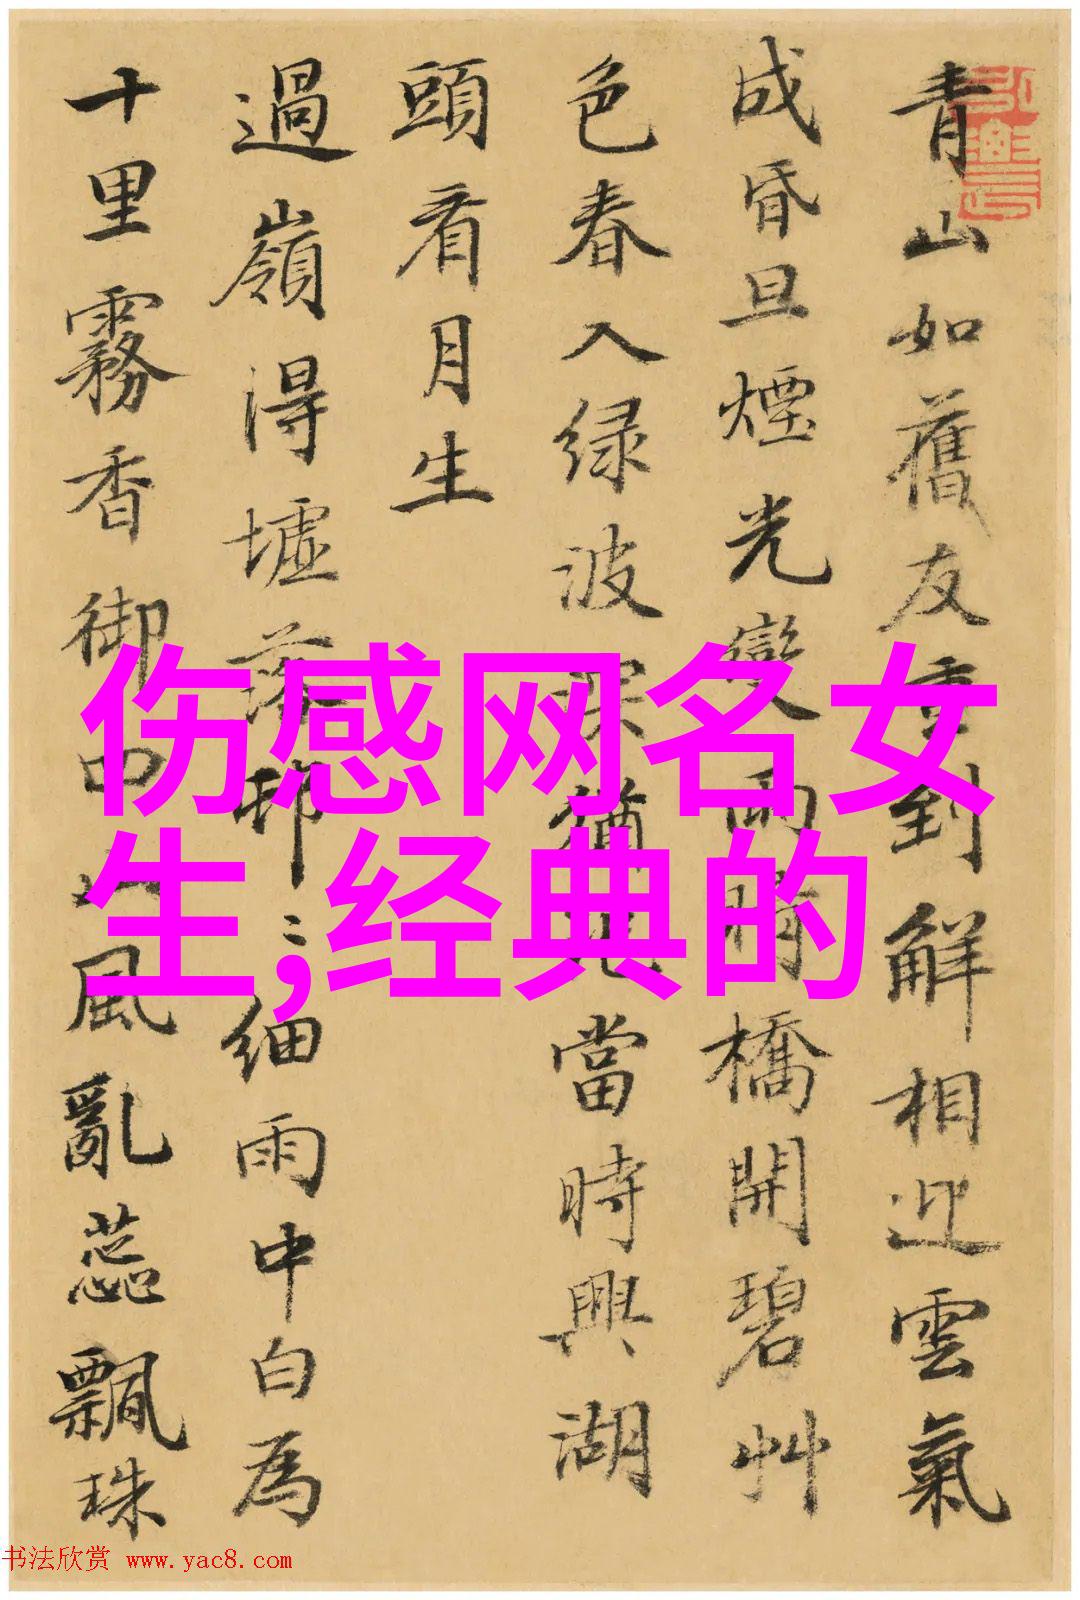 青山如舊友重到解相迎雲氣
成昏旦煙光變雨晴橋開碧艸
色春入绿波深猶當時興湖
頭看月生
過嶺得墟落邨〻細雨中白為
十里霧香御風亂蕊飄珠
伤感网名女
生;经典的
书法欣赏 www.yac8.com